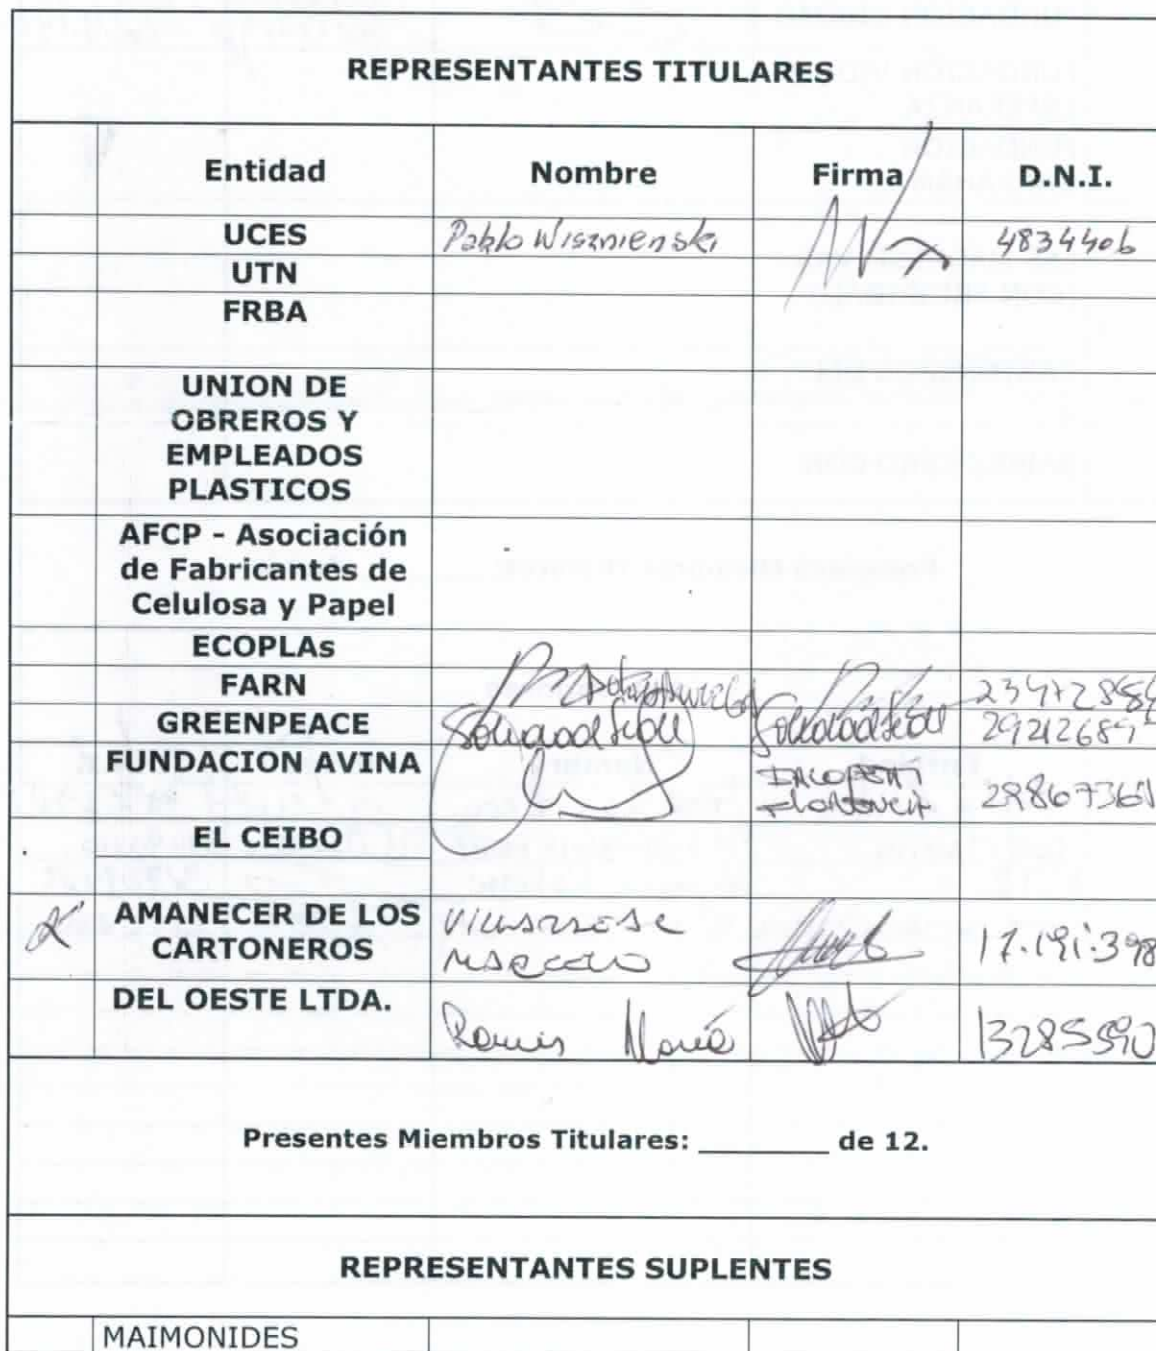 REPRESENTANTES TITULARES
Entidad Nombre Firma D.N.I.
UCES Pablo Wisznienski 4834406
UTN
FRBA
UNION DE
OBREROS Y
EMPLEADOS
PLASTICOS
AFCP - Asociación
de Fabricantes de
Celulosa y Papel
ECOPLAs
FARN
GREENPEACE
FUNDACION AVINA
EL CEIBO
AMANECER DE LOS
CARTONEROS 17.191.398
DEL OESTE LTDA.
María 13285590
Presentes Miembros Titulares: ________ de 12.
REPRESENTANTES SUPLENTES
MAIMONIDES